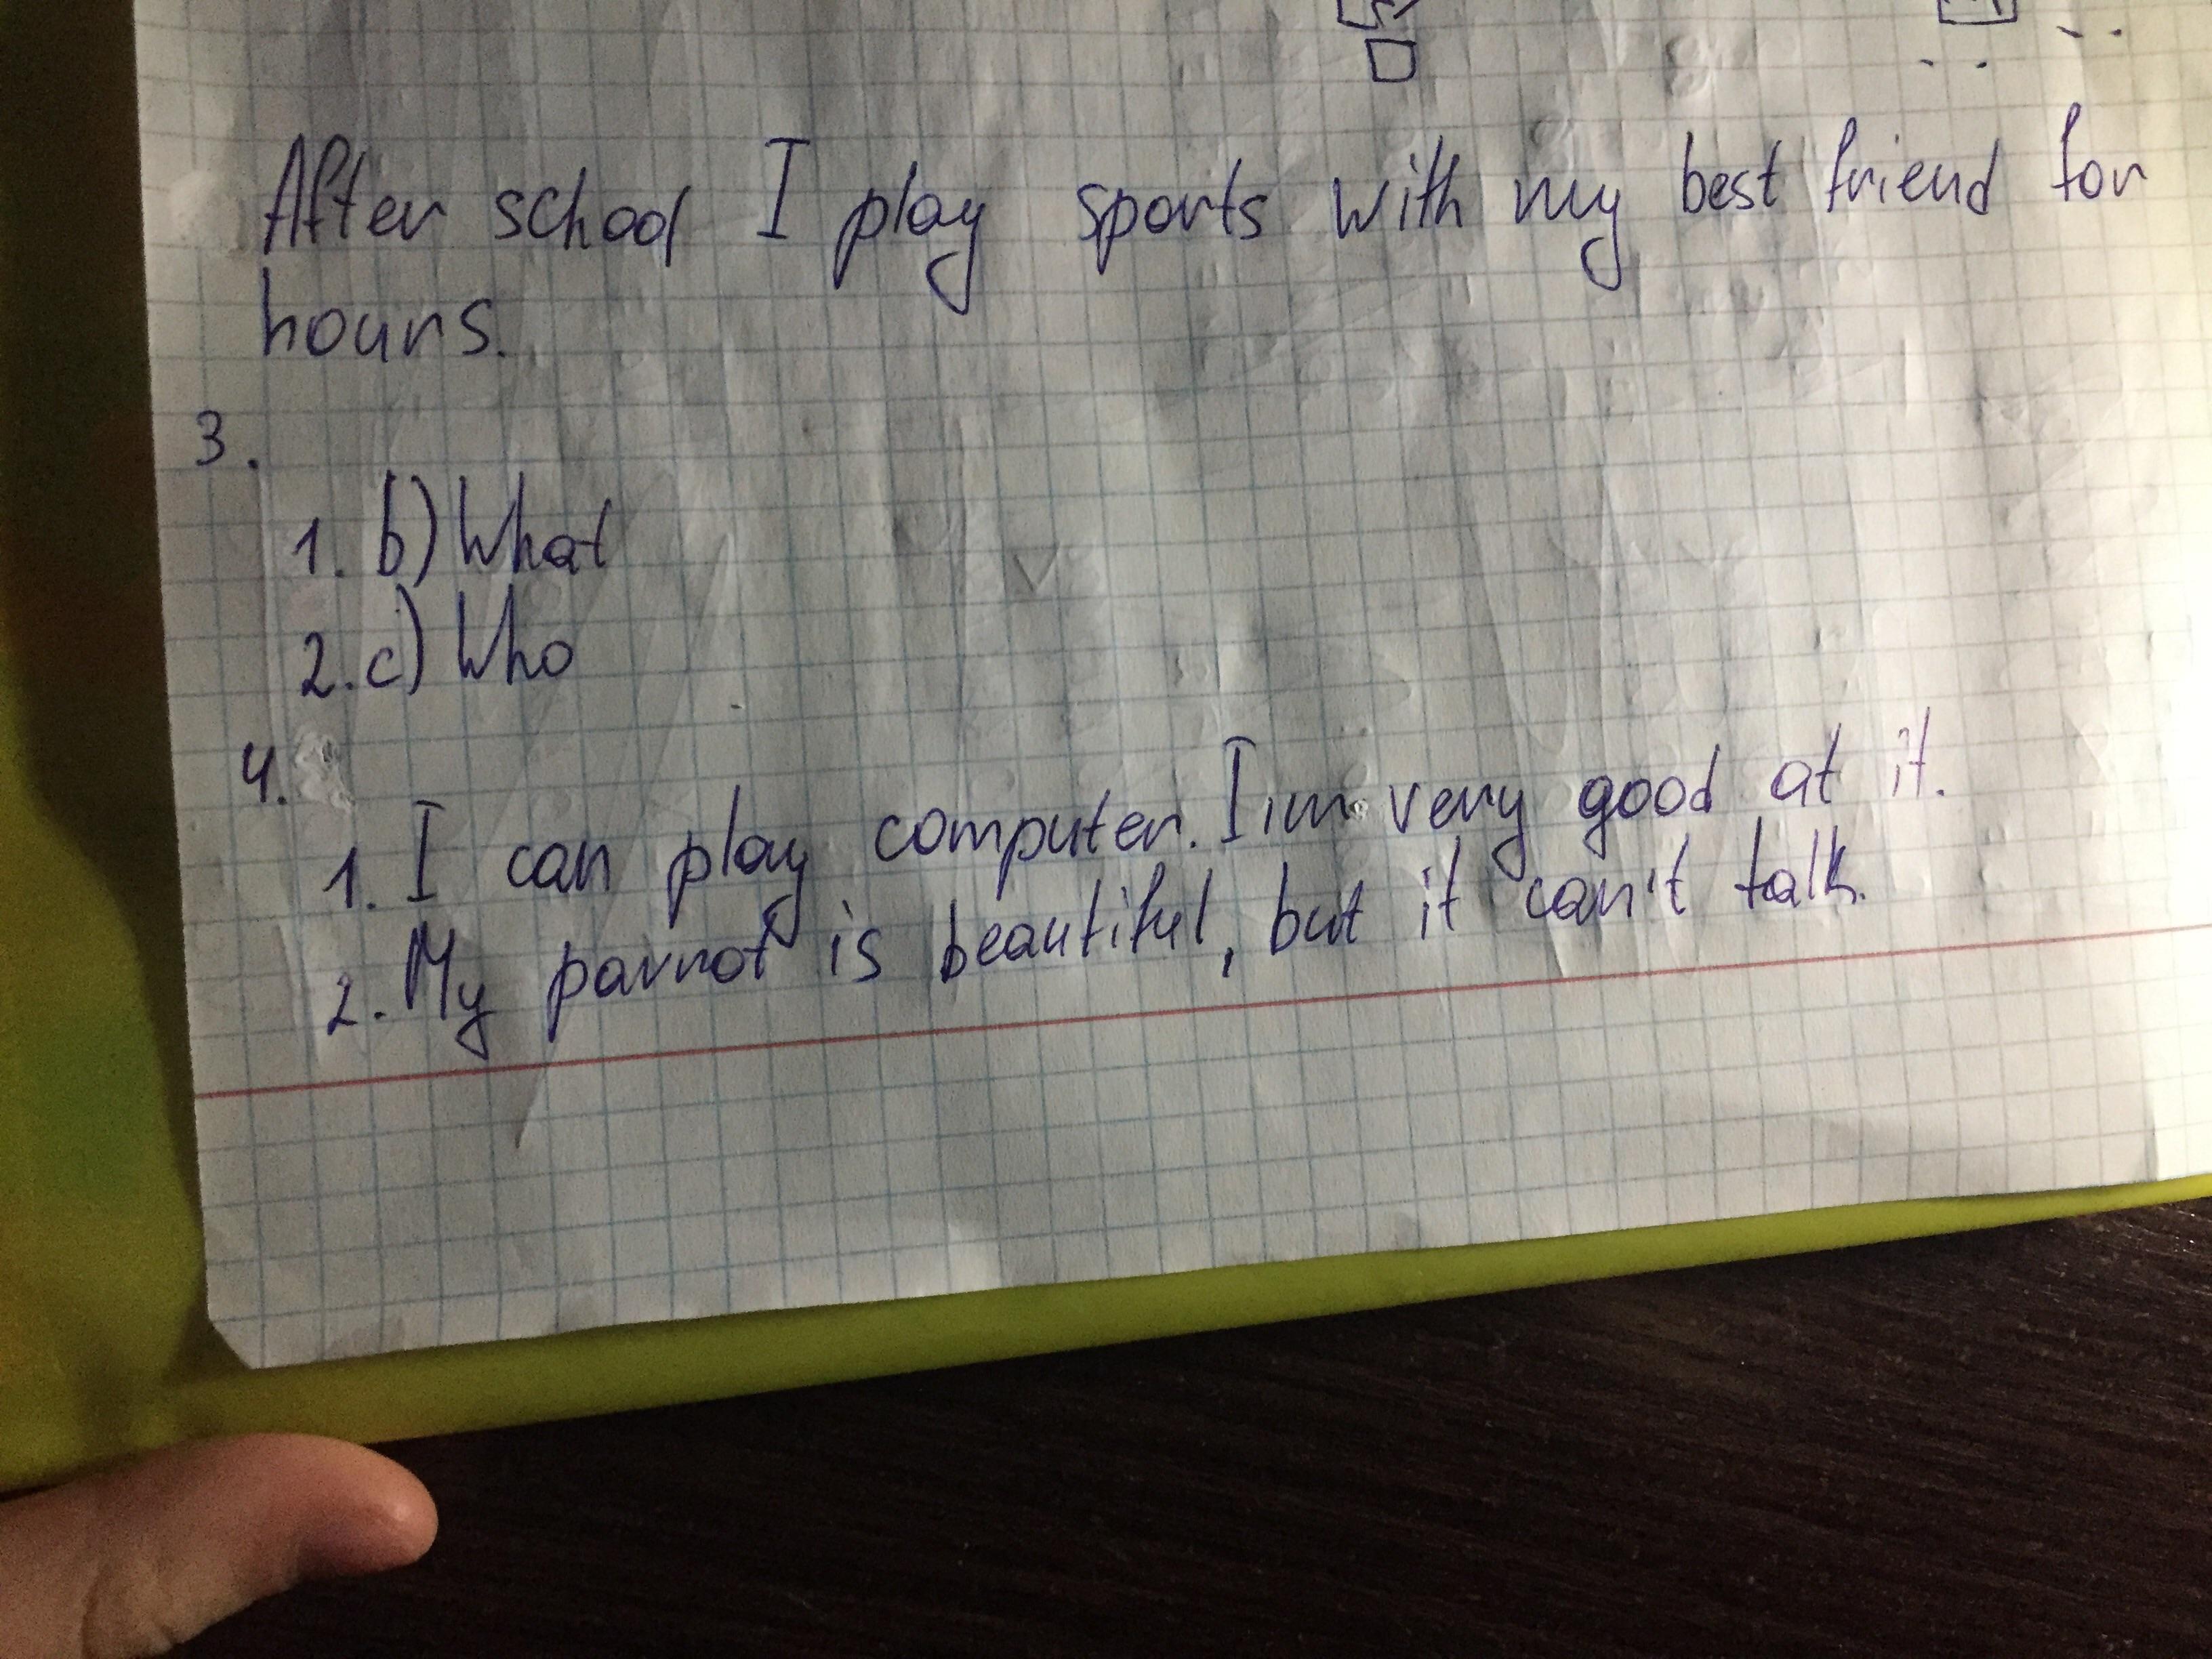 After school I play sports with my best friend for
hours.
3.
1. b) What
2. c) Who
4.
1. I can play computer. I'm very good at it.
2. My parrot is beautiful, but it can't talk.